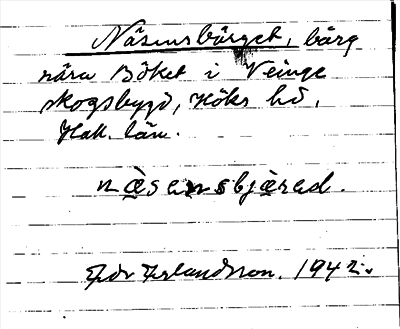 Näsensbärget, bärg
nära Böket i Veinge
skogsbygd, Höks hd,
Hall. län.
næsensbjærad.
Erlandsson. 1942.